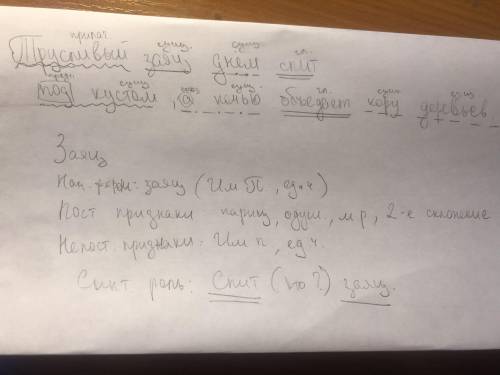 прилаг сущ. сущ. гл.
Трусливый заяц днём спит
предл. сущ. союз сущ. гл. сущ сущ
под кустом, а ночью объедает кору деревьев.
Заяц
Нач. форм: заяц (Им П, ед.ч)
Пост признаки нариц, одуш, м р, 2-е склонение
Непост. признаки: Им п, ед ч.
Синт роль: Спит (кто?) заяц.